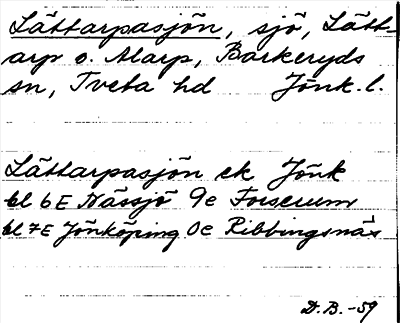 Lättarpasjön, sjö, Lätt-
arp o. Alarp, Barkeryds
sn, Tveta hd Jönk. l.
Lättarpasjön ek Jönk
bl 6E Nässjö 9e Forserum
bl 7E Jönköping 0e Ribbingsnäs
D.B. -59